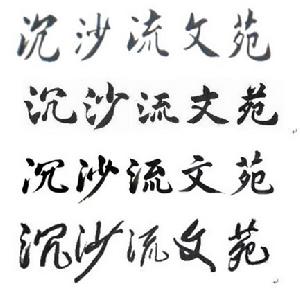 沉沙流文苑
沉沙流文苑
沉沙流文苑
沉沙流文苑